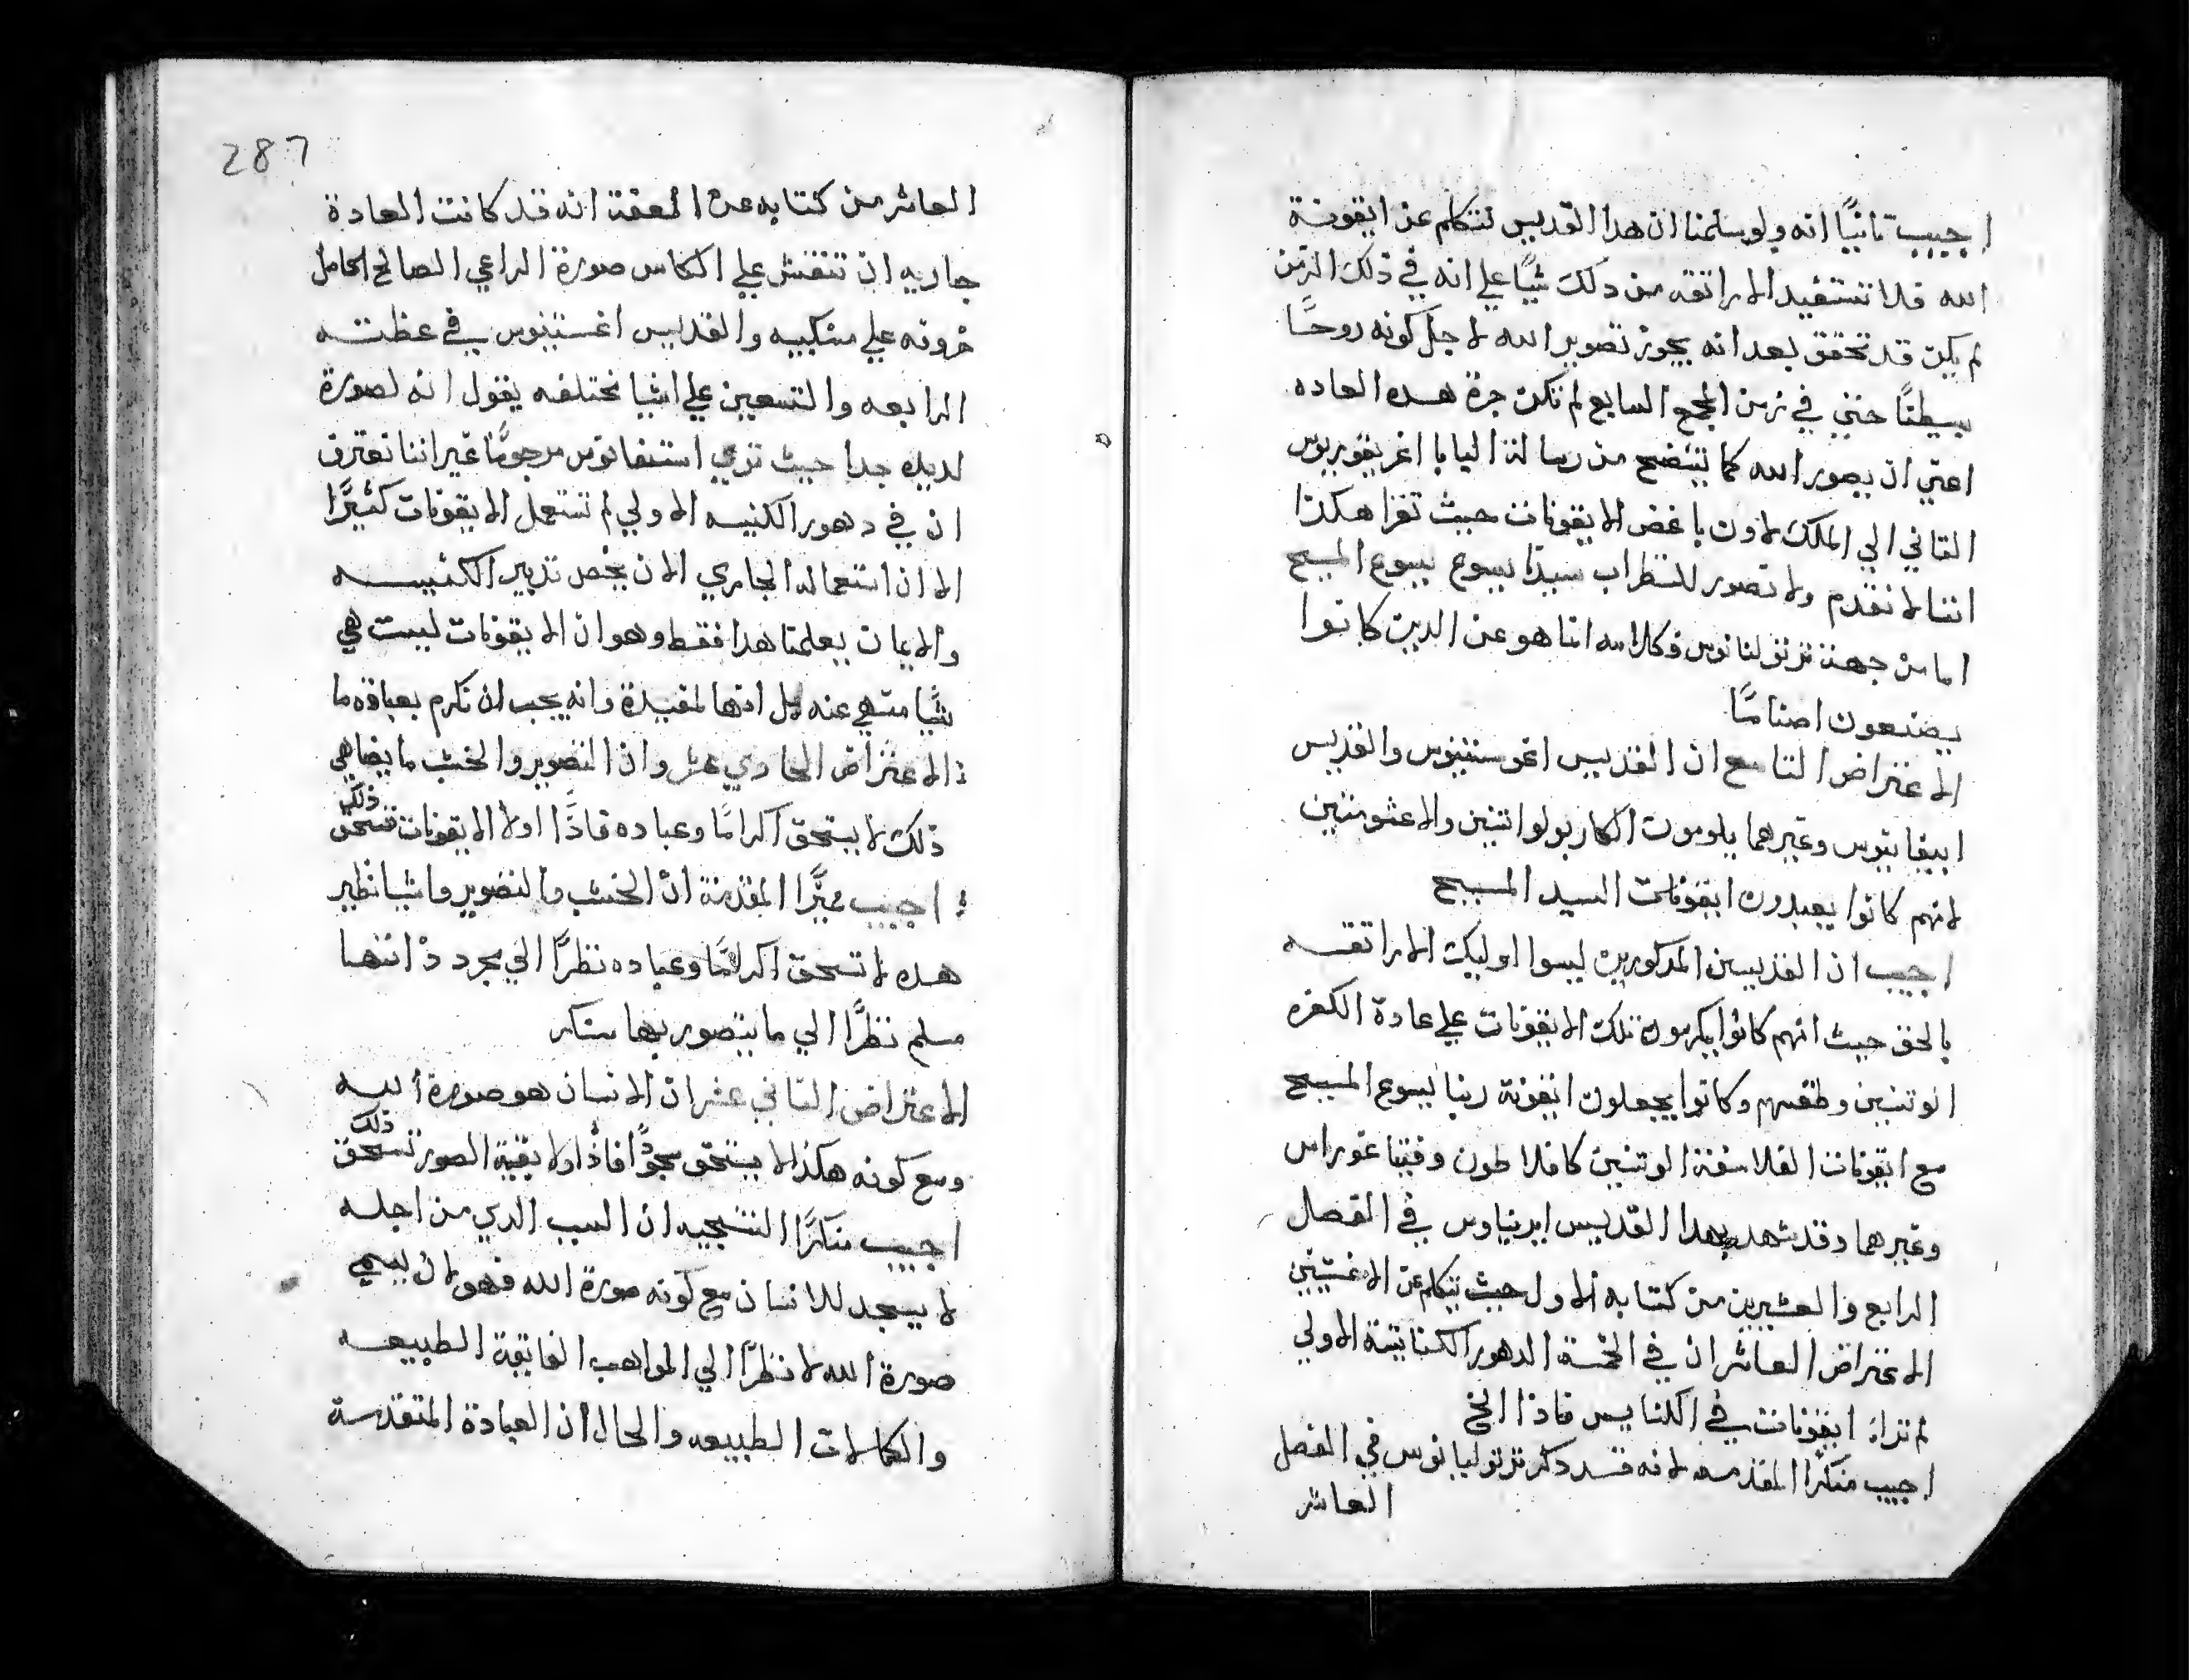 اجيب تانيًا انه ولو سلمنا ان هدا القديس تتكلم عن ايقونة
الله فلا تستفيد الاراتقه من دلك شيًا علي انه في ذلك الزمن
لم يكن قد تحقق بعد انه يجوز تصوير الله لاجل كونه روحًا
بسيطًا حتي في زمن المجمع السابع لم تكن جرة هده العاده
اعني ان يصور الله كما يتضح من رسالة البابا اغريغوريوس
التاني الي الملك لاون باغض الايقونات حيث تقرا هكذا
اننا لا نقدم ولا نصور للنظر اب سيدنا يسوع يسوع المسيح
اما من جهة ترتوليانوس فكلامه انما هو عن الدين كانوا
يصنعون اصنامًا
الاعتراض التاسع ان القديس اغوستينوس والقديس
ابيفانيوس وغيرهما يلومون الكاربولوانيين والاعنوسيين
لانهم كانوا يعبدون ايقونات السيد المسيح
اجيب ان القديسين المدكورين ليسوا اوليك الاراتقه
بالحق حيث انهم كانوا يكرمون تلك الايقونات علي عادة الكفره
الوتنيين وطقسهم وكانوا يجعلون ايقونة ربنا يسوع المسيح
مع ايقونات الفلاسفة الوتنيين كافلاطون وفيتاغوراس
وغيرهما وقد شهد بهدا القديس ايريناوس في الفصل
الرابع والعشرين من كتابه الاول حيث يتكلم عن الاغنسيين
الاعتراض العاشر ان في الخمسة الدهور الكنايسية الاولي
لم تراء ايقونات في الكنايس فاذا الخ
اجيب منكرًا المقدمه لانه قد دكر ترتوليانوس في الفصل
العاشر
287
العاشر من كتابه عن العفة انه قد كانت العادة
جاريه ان تنقش علي الكاس صورة الراعي الصالح الحامل
خروفه علي منكبيه والقديس اغستينوس في عظته
الرابعه والتسعين علي اشيا مختلفه يقول انه لصورة
لديده جدا حيث تري استفانوس مرجومًا غير اننا نعترف
ان في دهور الكنيسه الاولي لم تستعمل الايقونات كثيرًا
الا ان استعماله الجاري الان يخص تدبير الكنيسه
والايمان يعلمنا هدا فقط وهو ان الايقونات ليست هي
شيًا منهي عنه بل انها لمفيدة وانه يجب ان تكرم بعبادة ما
الاعتراض الحادي عشر وان التصوير والخشب ما يضاهي
ذلك لا يستحق اكرامًا وعباده فاذًا اولا الايقونات تستحق ذلك
اجيب مميزًا المقدمة ان الخشب والتصوير واشيا نظير
هده لا تستحق اكرامًا وعباده نظرًا الي مجرد ذاتها
مسلم نظرًا الي ما يتصور بها منكر
الاعتراض التاني عشر ان الانسان هو صورة الله
ومع كونه هكذا لا يستحق سجودًا فاذًا ولا بقية الصور تستحق ذلك
اجيب منكرًا النتيجه ان السبب الدي من اجله
لا يسجد للانسان مع كونه صورة الله فهو لان يسمي
صورة الله لا نظرًا الي المواهب الفايقة الطبيعه
والكمالات الطبيعه والحال ان العبادة المتقدسة